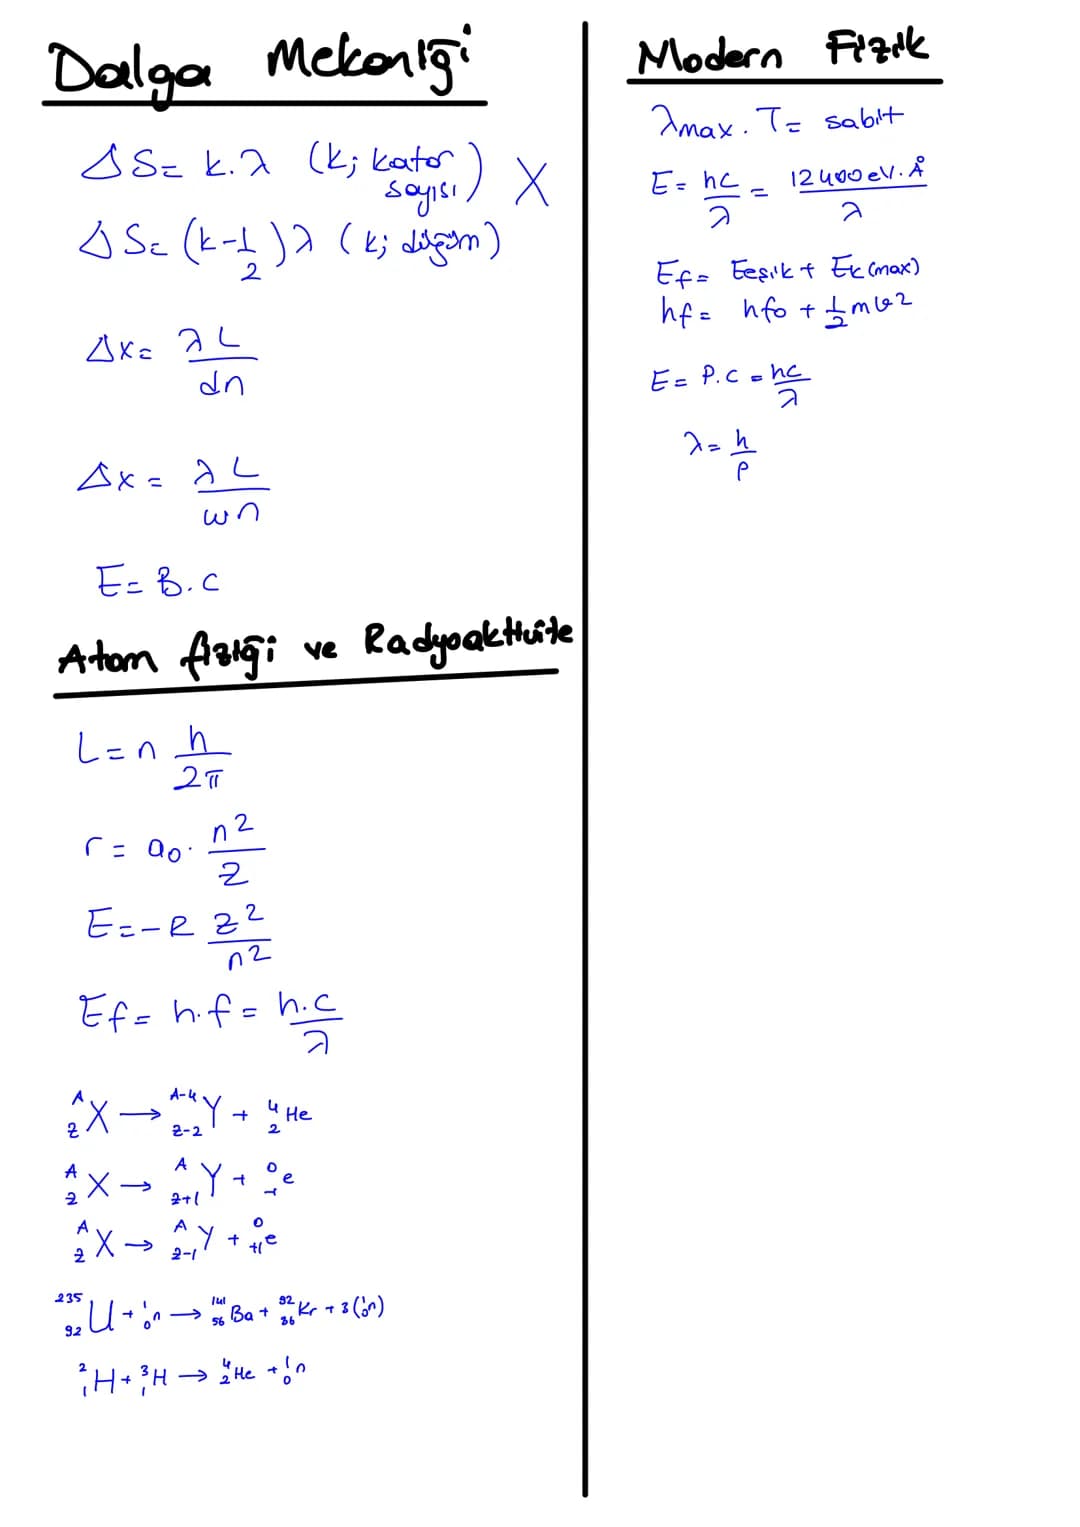 Dalga Mekaniği
ΔS= k.λ (k; katar sayısı) X
ΔS= (k-1/2)λ (k; düğüm)
Δx= λL/dn
Δx= λL/wn
E= B.c
Atom fiziği ve Radyoaktivite
L=n h/2π
r= a₀. n²/Z
E=-R Z²/n²
Ef= h.f= h.c/λ
ᴬ_Z X → ᴬ⁻⁴_Z-2 Y + ⁴₂He
ᴬ_Z X → ᴬ_Z+1 Y + ⁰₋₁e
ᴬ_Z X → ᴬ_Z-1 Y + ⁰₊₁e
²³⁵₉₂U + ¹₀n → ¹⁴¹₅₆Ba + ⁹²₃₆Kr + 3(¹₀n)
²₁H + ³₁H → ⁴₂He + ¹₀n
Modern Fizik
λmax. T= sabit
E= hc/λ = 12400 eV.Å/λ
Ef= Eeşik + Ek(max)
hf= hf₀ + 1/2 mv²
E= P.c = hc/λ
λ= h/p